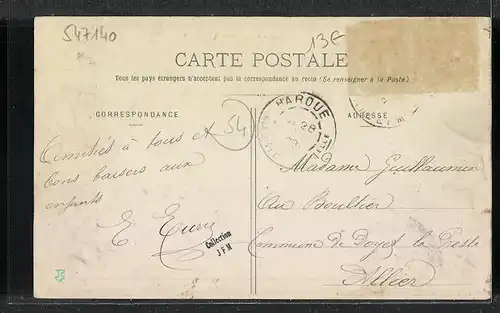 547140
13€
CARTE POSTALE
Tous les pays étrangers n'acceptent pas la correspondance au recto (Se renseigner à la Poste)
CORRESPONDANCE
ADRESSE
54
HAROUÉ
Amitiés à tous et
bons baisers aux
enfants
E.
Collection
J F M
Madame Guillaumin
Au Boultier
Commune de Doyet la Presle
Allier